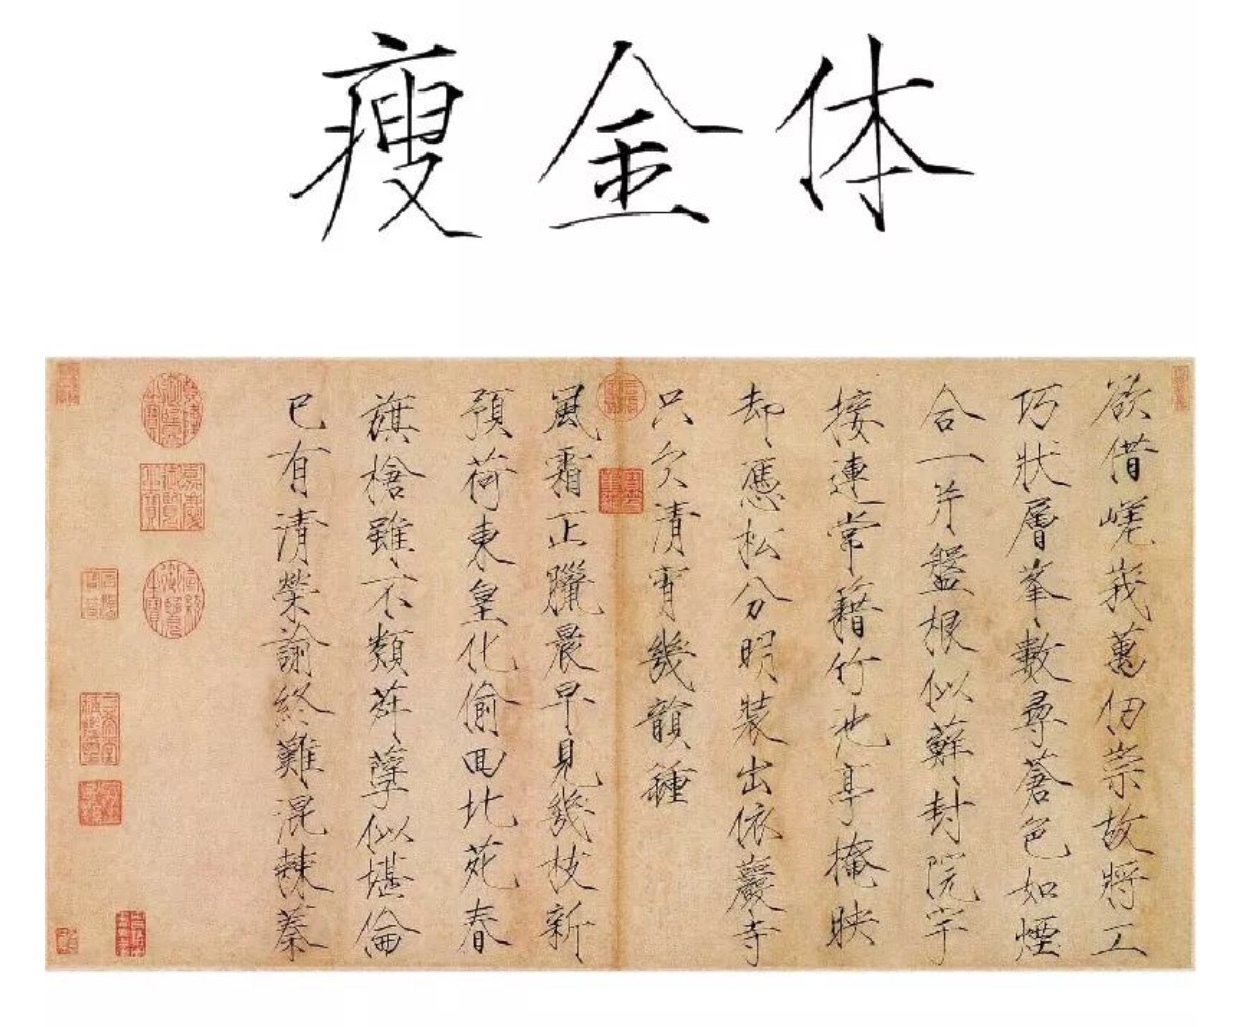 瘦金体
欲借嵯峩萬仞崇故將工
巧狀層峯數尋蒼色如煙
合一片盤根似蘚封院宇
接連常籍竹池亭掩映
却憑松分明裝出依巖寺
只欠清宵幾韻鍾
風霜正臘晨早見幾枝新
預荷東皇化偷回北苑春
旗槍雖不類荈孽似堪倫
已有清榮諭終難混棘蓁